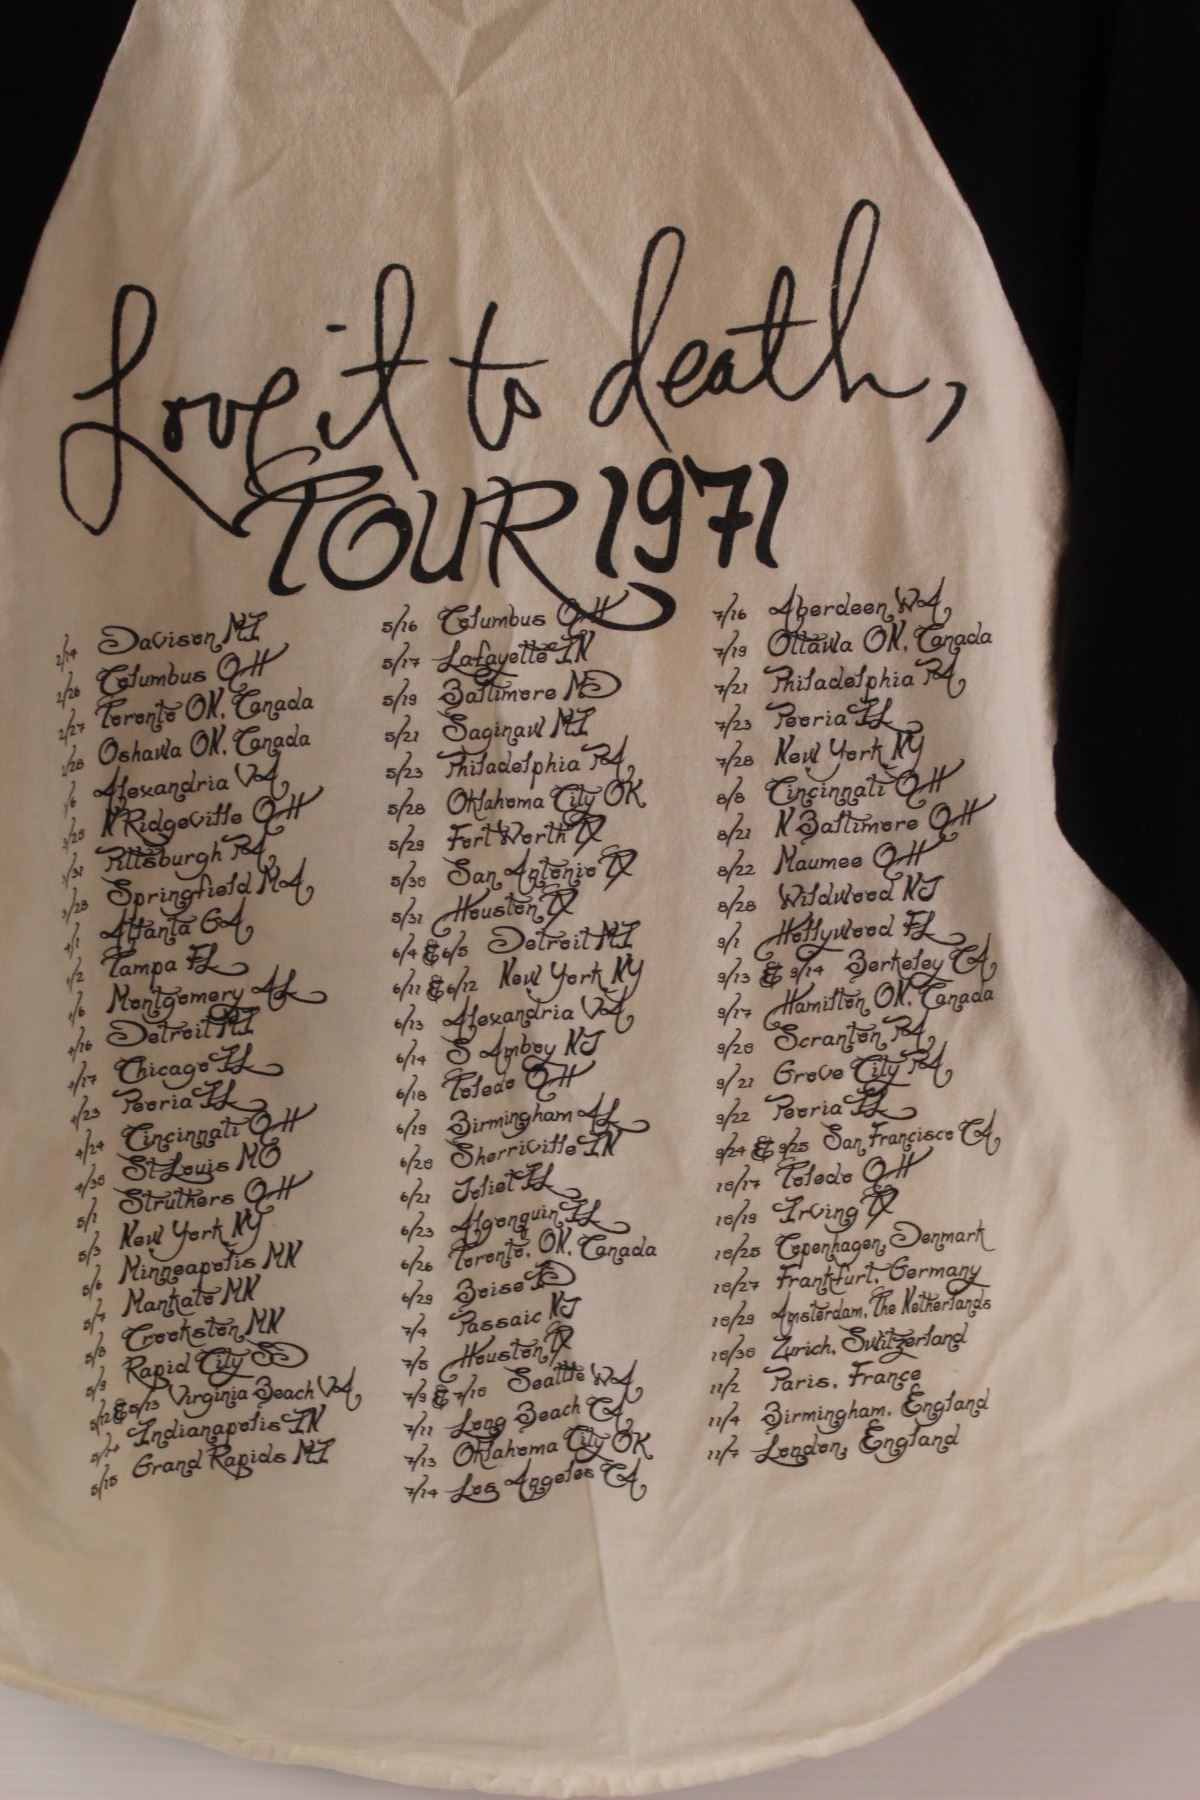 Love it to death,
TOUR 1971
2/14 Davison MI
2/26 Columbus OH
2/27 Toronto ON, Canada
2/28 Oshawa ON, Canada
Alexandria VA
N Ridgeville OH
Pittsburgh PA
Springfield MA
4/1 Atlanta GA
4/2 Tampa FL
4/6 Montgomery AL
4/16 Detroit MI
4/17 Chicago IL
4/23 Peoria IL
4/24 Cincinnati OH
4/30 St Louis MO
5/1 Struthers OH
5/3 New York NY
5/6 Minneapolis MN
5/7 Mankato MN
5/8 Crookston MN
5/9 Rapid City SD
5/12 & 5/13 Virginia Beach VA
5/14 Indianapolis IN
5/15 Grand Rapids MI
5/16 Columbus OH
5/17 Lafayette IN
5/19 Baltimore MD
5/21 Saginaw MI
5/23 Philadelphia PA
5/28 Oklahoma City OK
5/29 Fort Worth TX
5/30 San Antonio TX
5/31 Houston TX
6/4 & 6/5 Detroit MI
6/11 & 6/12 New York NY
6/13 Alexandria VA
6/14 S Amboy NJ
6/18 Toledo OH
6/19 Birmingham AL
6/20 Sherriville IN
6/21 Joliet IL
6/23 Algonquin IL
6/26 Toronto, ON, Canada
6/29 Boise ID
7/4 Passaic NJ
7/5 Houston TX
7/9 & 7/10 Seattle WA
7/11 Long Beach CA
7/13 Oklahoma City OK
7/14 Los Angeles CA
7/16 Aberdeen WA
7/19 Ottawa ON, Canada
7/21 Philadelphia PA
7/23 Peoria IL
7/28 New York NY
8/8 Cincinnati OH
8/21 N Baltimore OH
8/22 Maumee OH
8/28 Wildwood NJ
9/1 Hollywood FL
9/13 & 9/14 Berkeley CA
9/17 Hamilton ON, Canada
9/20 Scranton PA
9/21 Grove City PA
9/22 Peoria IL
9/24 & 9/25 San Francisco CA
10/17 Toledo OH
10/19 Irving TX
10/25 Copenhagen, Denmark
10/27 Frankfurt, Germany
10/29 Amsterdam, The Netherlands
10/30 Zurich, Switzerland
11/2 Paris, France
11/4 Birmingham, England
11/7 London, England